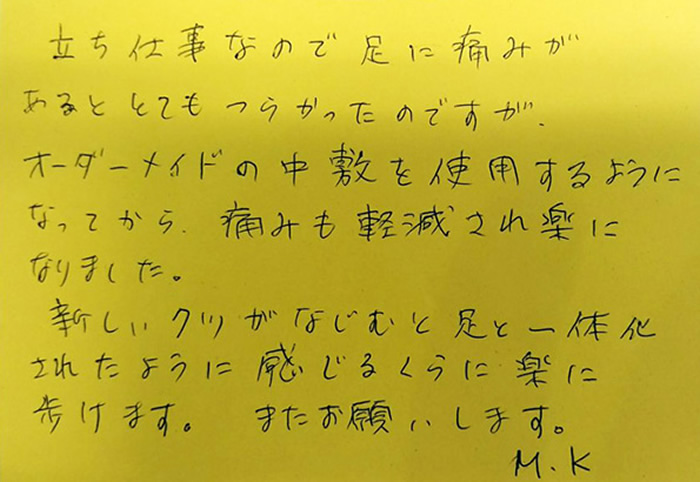 立ち仕事なので足に痛みが
あるととてもつらかったのですが、
オーダーメイドの中敷を使用するように
なってから、痛みも軽減され楽に
なりました。
新しいクツがなじむと足と一体化
されたように感じるくらいに楽に
歩けます。 またお願いします。
M.K